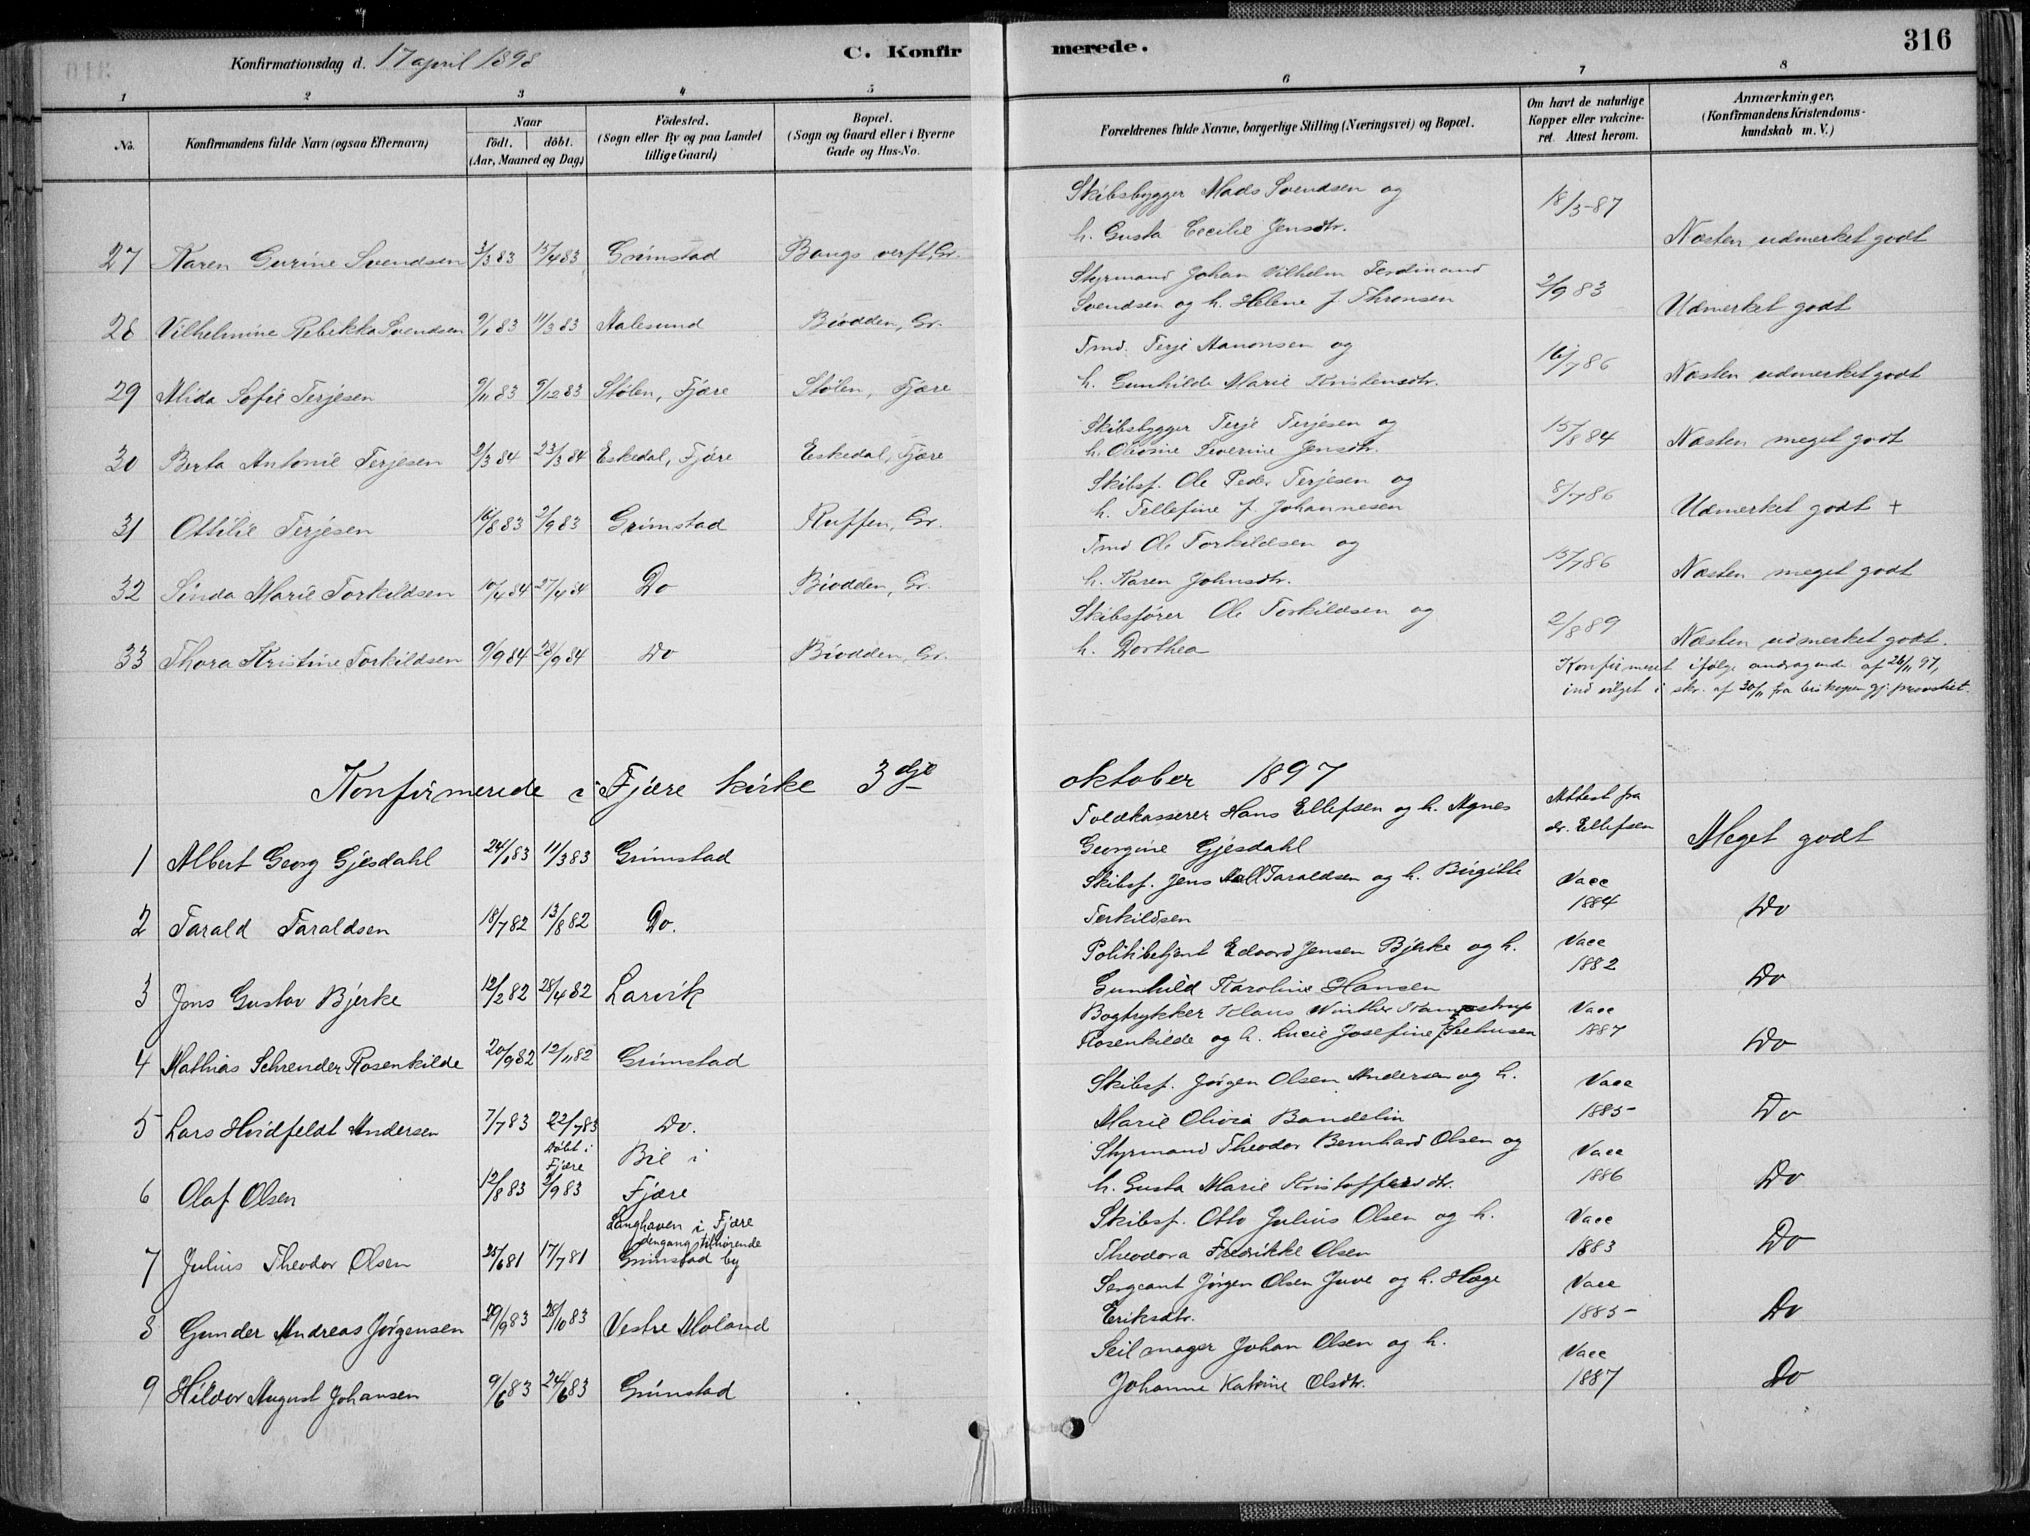 316
Konfirmationsdag d. 17 april 1898
C. Konfirmerede.
1 2 3 4 5 6 7 8
No.
Konfirmandens fulde Navn (ogsaa Efternavn)
Naar
födt. döbt.
(Aar, Maaned og Dag)
Födested.
(Sogn eller By og paa Landet
tillige Gaard)
Bopæl.
(Sogn og Gaard eller i Byerne
Gade og Hus-No.
Forældrenes fulde Navne, borgerlige Stilling (Næringsvei) og Bopæl.
Om havt de naturlige
Kopper eller vakcine-
ret. Attest herom.
Anmærkninger.
(Konfirmandens Kristendoms-
kundskab m. V.)
Skibsbygger Mads Svendsen og
27 Karen Gurine Svendsen 3/3 83 15/4 83 Grimstad Bangs verft, Gr. h. Gusta Cecilie Jensdtr. 18/3-87 Næsten udmerket godt
Styrmand Johan Vilhelm Ferdinand
28 Vilhelmine Rebekka Svendsen 9/1 83 11/3 83 Aalesund Biodden, Gr. Svendsen og h. Helene f. Thronsen 2/9 83 Udmerket godt
Tmd. Terje Aanonsen og
29 Alida Sofie Terjesen 9/11 83 9/12 83 Stølen, Fjære Stølen, Fjære h. Gunhilde Marie Kristensdtr. 16/7 86 Næsten udmerket godt
Skibsbygger Terje Terjesen og
30 Berta Antonie Terjesen 2/3 84 23/3 84 Eskedal, Fjære Eskedal, Fjære h. Severine Jensdtr. 15/8 84 Næsten meget godt
Skibsf. Ole Peder Terjesen og
31 Ottilie Terjesen 16/8 83 2/9 83 Grimstad Ruffen, Gr. h. Tellefine f. Johannesen 8/7 86 Udmerket godt +
Tmd Ole Torkildsen og
32 Linda Marie Torkildsen 10/4 84 27/4 84 Do Biodden, Gr. h. Karen Johnsdtr. 15/7 86 Næsten meget godt
Skibsfører Ole Torkildsen og
33 Thora Kristine Torkildsen 9/9 84 28/9 84 Do Biodden, Gr. h. Dorthea 2/8 89 Næsten udmerket godt.
Konfirmeret ifølge andragende af 26/11 97,
indvilget i skr. af 30/11 fra biskopen gj. provstiet.
Konfirmerede i Fjære kirke 3dje oktober 1897
Toldkasserer Hans Ellefsen og h. Agnes Attest fra
1 Albert Georg Gjesdahl 24/1 83 11/3 83 Grimstad Georgine Gjesdahl dr. Ellefsen Meget godt
Skibsf. Jens Taraldsen og h. Birgitte Vacc
2 Tarald Taraldsen 18/7 82 13/8 82 Do. Terkildsen 1884 Do
Politibetjent Edvard Jensen Bjerke og h. Vacc
3 Jens Gustav Bjerke 12/2 82 28/4 82 Larvik Gunhild Karoline Hansen 1882 Do
Bogtrykker Klaus Winther Kamstrup Vacc
4 Mathias Schrender Rosenkilde 20/9 82 12/11 82 Grimstad Rosenkilde og h. Lucie Josefine f. Seehusen 1887 Do
Skibsf. Jørgen Olsen Andersen og h. Vacc
5 Lars Hvidfeldt Andersen 7/7 83 22/7 83 Do. Marie Olivia Bandelin 1885 Do
Døbt i
Fjære
Styrmand Theodor Bernhard Olsen og Vacc
6 Olaf Olsen 12/8 83 2/9 83 Bie i
Fjære h. Gusta Marie Kristoffersdtr. 1886 Do
Langhaven i Fjære
dengang tilhørende
Skibsf. Otto Julius Olsen og h. Vacc
7 Julius Theodor Olsen 25/6 81 17/7 81 Grimstad by Theodora Fredrikke Olsen 1883 Do
Sergeant Jørgen Olsen Juve og h. Hæge Vacc
8 Gunder Andreas Jørgensen 29/9 83 28/10 83 Vestre Moland Eriksdtr. 1885 Do
Seilmager Johan Olsen og h. Vacc
9 Hildor August Johansen 9/6 83 24/6 83 Grimstad Johanne Katrine Olsdtr. 1887 Do